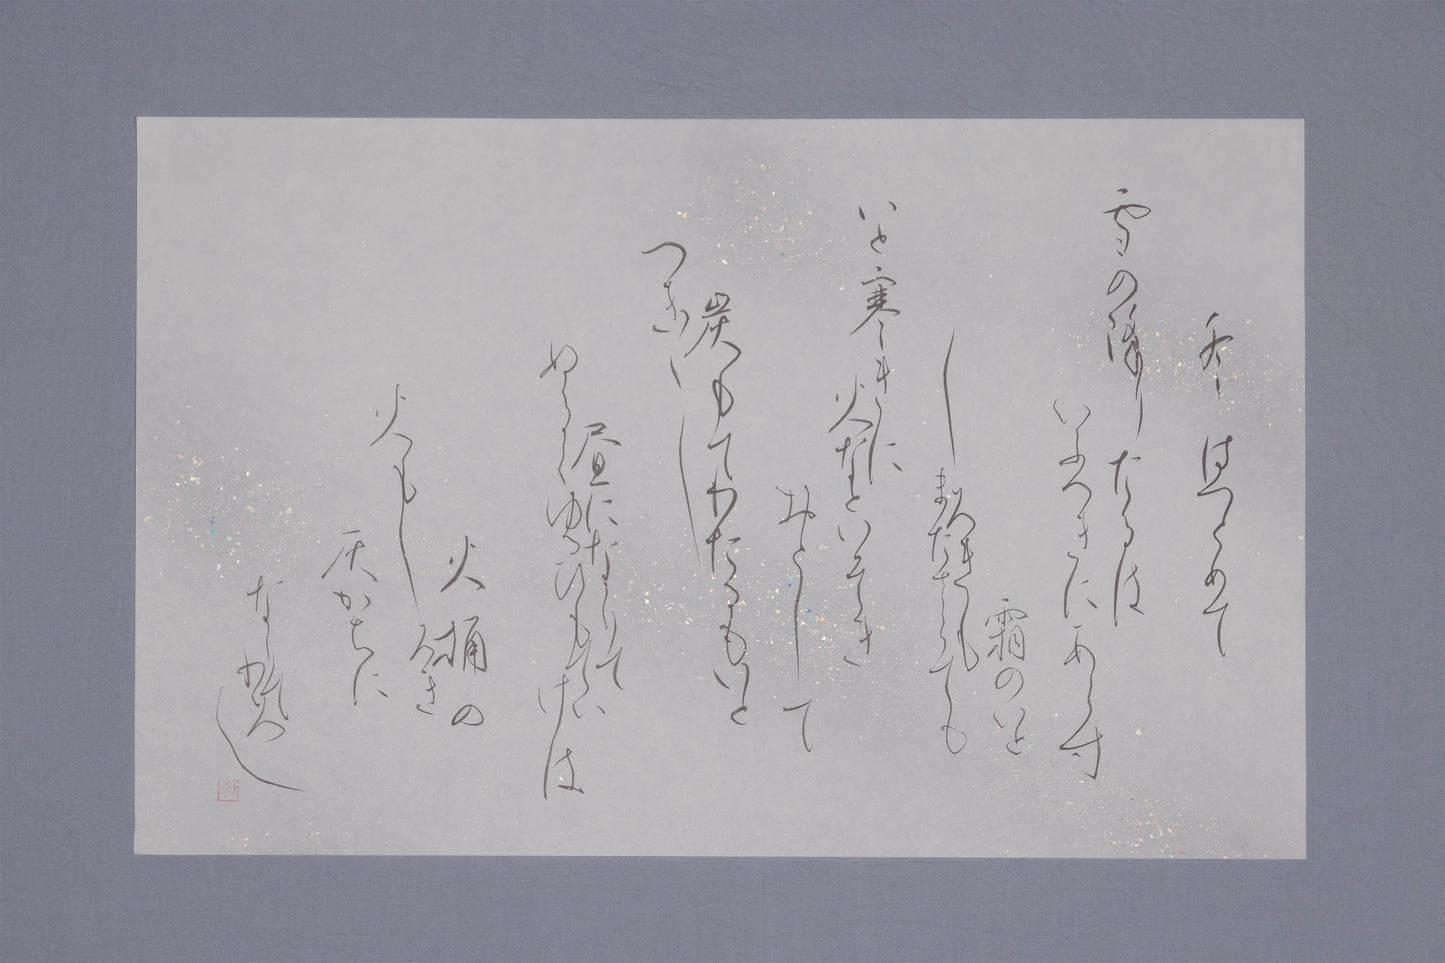 冬はつとめて
雪の降りたるは
いふへきにあらす
霜のいと
しろきも
またさらても
いと寒きに
火なといそき
おこして
炭もてわたるもいと
つき〳〵し
昼になりて
ぬるくゆるひもていけは
火桶の
火もしろき
灰かちに
なりてわろし